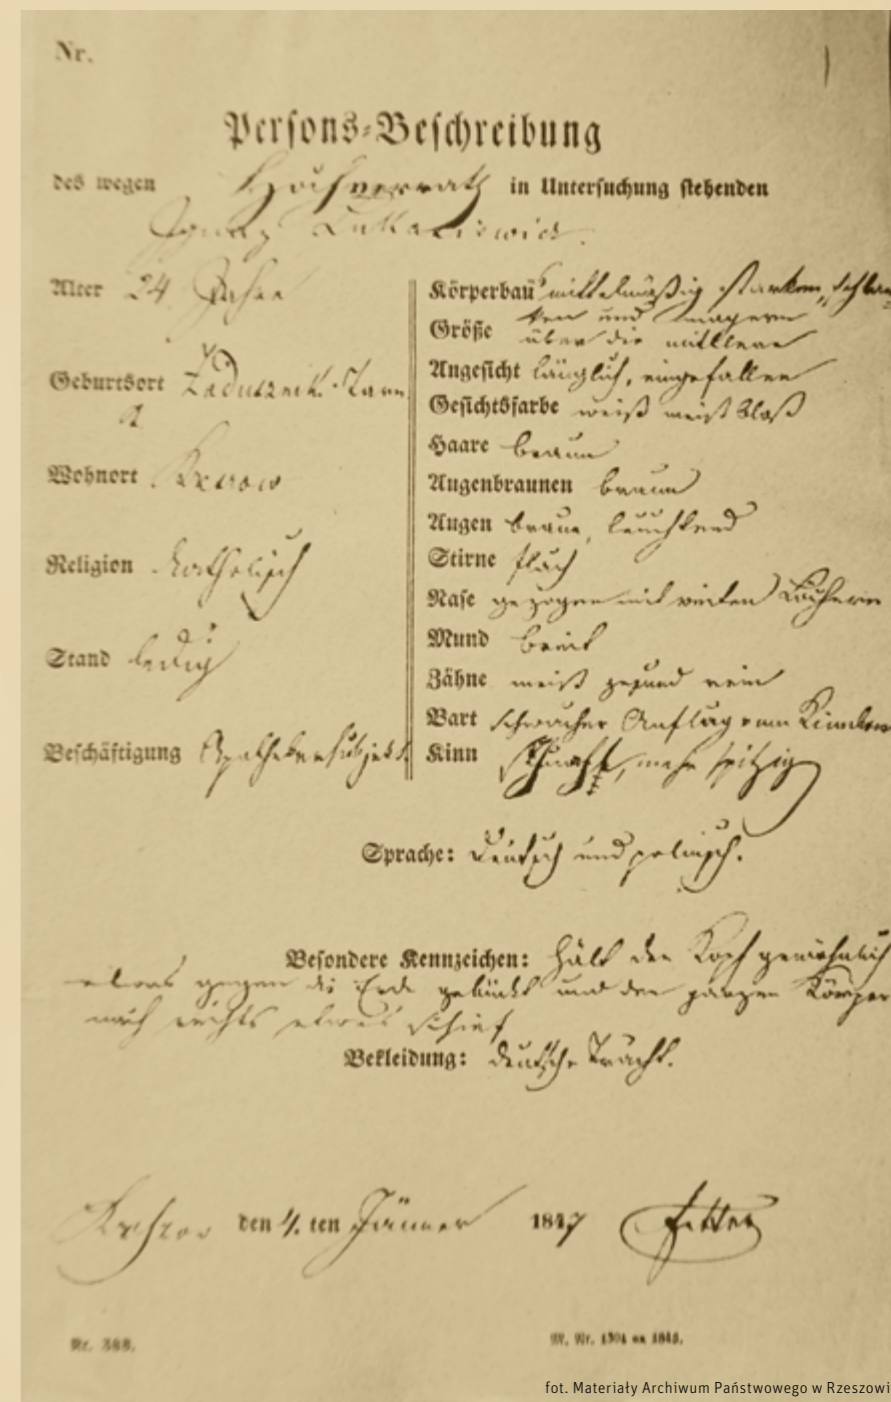 Nr.
Persons-Beschreibung
des wegen Hochverrath in Untersuchung stehenden
Ignaz Lukasiewicz.
Alter 24 Jahre
Geburtsort
Wohnort
Religion Katholisch
Stand ledig
Beschäftigung Apothekersubjekt
Körperbau mittelmäßig starken,
und magern
Größe über die mittlere
Angesicht länglich, eingefallen
Gesichtsfarbe weiß meist blaß
Haare braun
Augenbraunen braun
Augen braun, leuchtend
Stirne flach
Nase gezogen mit weiten Löchern
Mund breit
Zähne weiß gesund rein
Bart schwacher Anflug am
Kinn mehr spitzig
Sprache: Deutsch und polnisch.
Besondere Kennzeichen: Hält den Kopf gewöhnlich
etwas gegen die Erde gebückt und den ganzen Körper
nach rechts etwas schief
Bekleidung: deutsche Tracht.
den 4. ten Jänner 1847
Nr. 388.
fot. Materiały Archiwum Państwowego w Rzeszowi